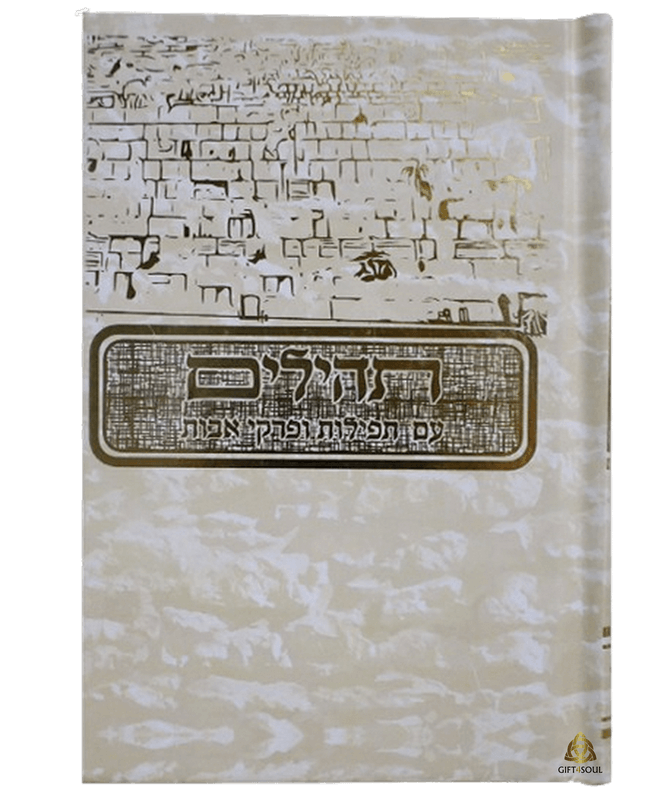 תהילים
עם תפילות ופרקי אבות
GIFT4SOUL